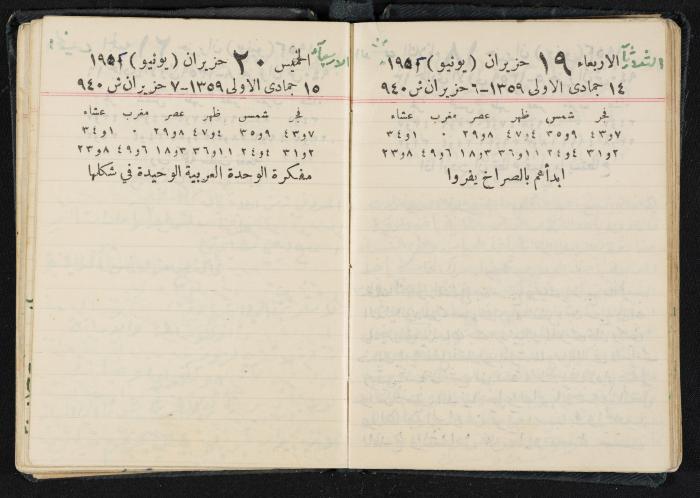 الثلاثاء
الاربعاء ١٩ حزيران (يونيو) ١٩٥٢
١٤ جمادى الاولى ١٣٥٩-٦ حزيران ش ٩٤٠
فجر شمس ظهر عصر مغرب عشاء
٧و٤٣ ٩و٣٥ ٤و٤٧ ٨و٢٩ ٠ ١و٣٤
٢و٣١ ٤و٢٤ ١١و٣٦ ٣و١٨ ٦و٤٩ ٨و٢٣
ابدأهم بالصراخ يفروا
الاربعاء
الخميس ٢٠ حزيران (يونيو) ١٩٥٢
١٥ جمادى الاولى ١٣٥٩-٧ حزيران ش ٩٤٠
فجر شمس ظهر عصر مغرب عشاء
٧و٤٣ ٩و٣٥ ٤و٤٧ ٨و٢٩ ٠ ١و٣٤
٢و٣١ ٤و٢٤ ١١و٣٦ ٣و١٨ ٦و٤٩ ٨و٢٣
مفكرة الوحدة العربية الوحيدة في شكلها